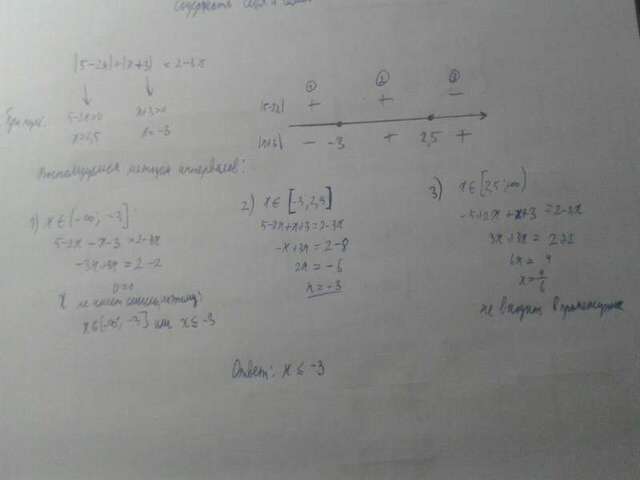 содержать
|5-2x|+|x+3| = 2-3x
5-2x=0 x+3=0
x=2,5 x=-3
① ② ③
|5-2x| + + -
|x+3| - -3 + 2,5 +
методом интервалов:
1) x∈(-∞; -3]
5-2x-x-3=2-3x
-3x+3x=2-2
0=0
x не имеет
x∈(-∞; -3] или x≤-3
2) x∈[-3;2,5]
5-2x+x+3=2-3x
-x+3x=2-8
2x=-6
x=-3
3) x∈[2,5;∞)
-5+2x+x+3=2-3x
3x+3x=2+2
6x=4
x=4/6
не входит в промежуток
Ответ: x≤-3